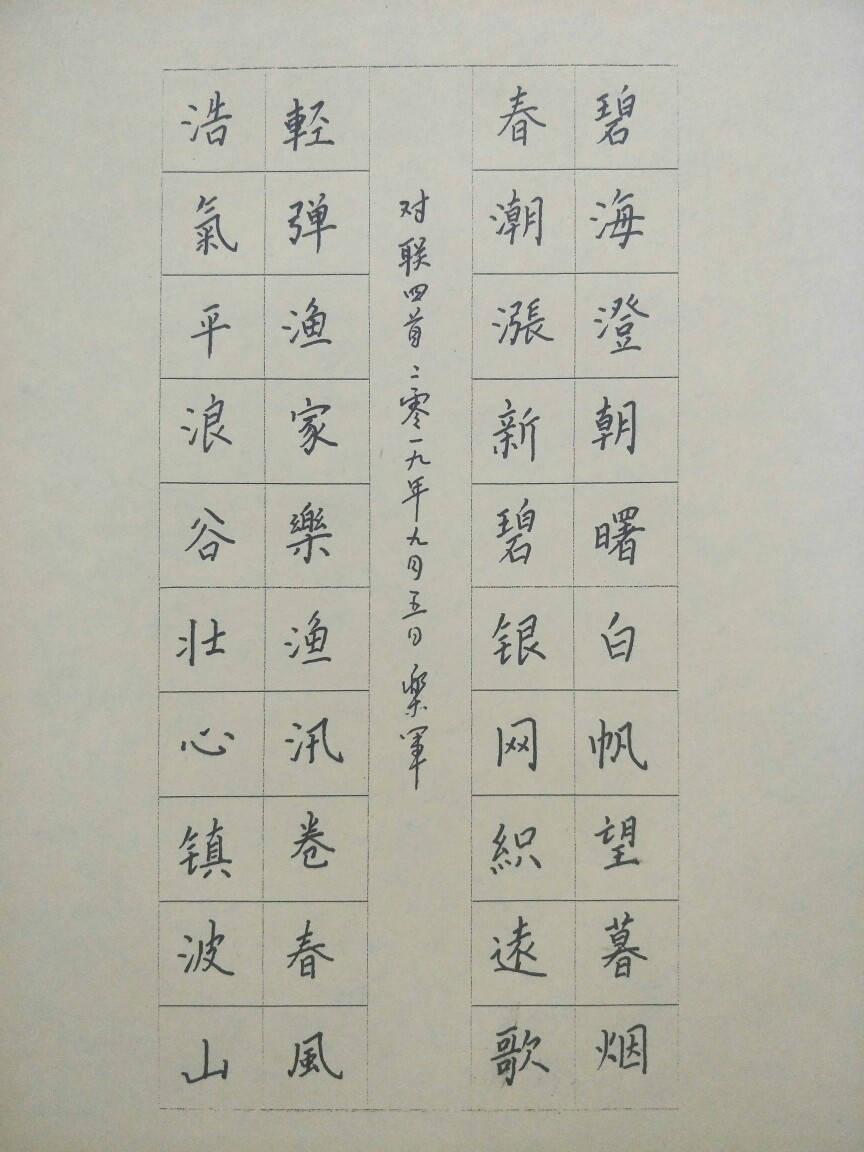 碧海澄朝曙白帆望暮烟
春潮漲新碧银网織遠歌
对联四首二零一九年九月五日樂军
輕弹渔家樂渔汛卷春風
浩氣平浪谷壮心镇波山